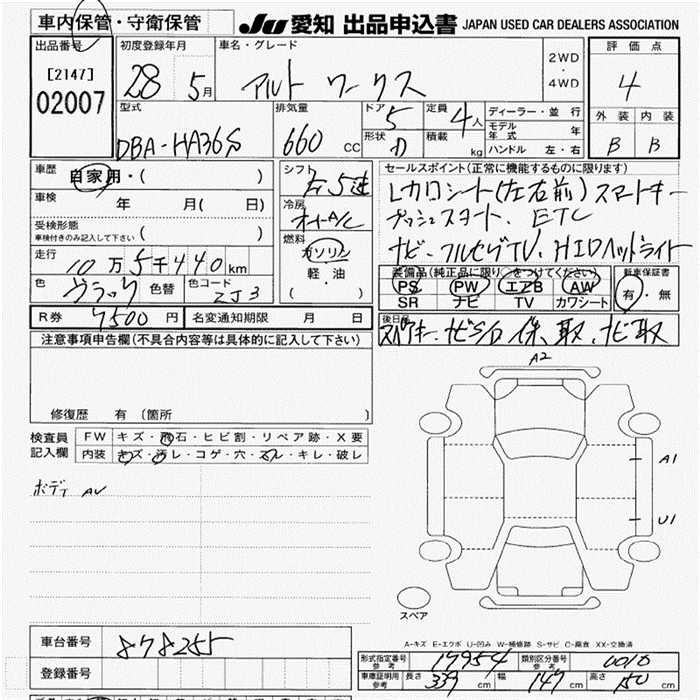 車内保管・守衛保管 JU 愛知 出品申込書 JAPAN USED CAR DEALERS ASSOCIATION
出品番号 初度登録年月 車名・グレード 2WD・4WD 評価点
[2147] 28 5月 アルト ワークス 4
02007
型式 排気量 ドア 5 定員 4人 ディーラー・並行 外装 内装
DBA-HA36S 660 CC 形状 積載 kg モデル年式 年 B B
ハンドル 左・右
車歴 自家用・( )
シフト 5速
セールスポイント(正常に機能するものに限ります)
レカロシート(左右前)スマートキー
プッシュスタート、ETC
ナビ・フルセグTV、HIDヘッドライト
車検 年 月( 日)
冷房 オートA/C
受検形態 車検付きのみ記入して下さい ( )
燃料 ガソリン 軽・油 ( )
走行 10万5千440km
色 ブラック 色替 色コード ZJ3
装備品(純正品に限り○をつけてください) 新車保証書
PS PW エアB AW 有・無
SR ナビ TV カワシート
R券 7500円 名変通知期限 月 日
後日品 スペアキー、ナビSD 保、取、ナビ取
注意事項申告欄(不具合内容等は具体的に記入して下さい)
修復歴 有 (箇所 )
A2
検査員記入欄 FW キズ・飛石・ヒビ割・リペア跡・X要
内装 キズ・汚レ・コゲ・穴・スレ・キレ・破レ
A1
ボディ AU
U1
スペア
A-キズ E-エクボ U-凹み W-補修跡 S-サビ C-腐食 XX-交換済
車台番号 878255
登録番号
形式指定番号 参考 17954 類別区分番号 参考 0010
車庫証明用 参考 長さ 339cm 幅 147cm 高さ 150cm